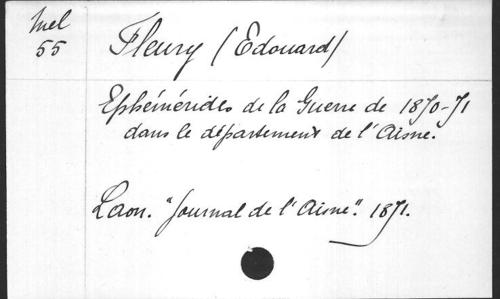 Mel
55
Fleury (Edouard)
Ephémérides de la Guerre de 1870-71
dans le département de l'Aisne.
Laon. "Journal de l'Aisne". 1871.